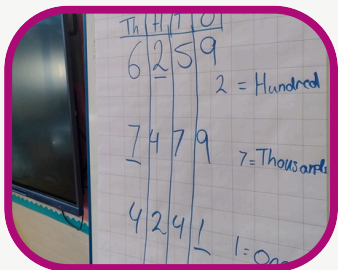 Th H T O
6 2 5 9
2 = Hundred
7 4 7 9
7 = Thousands
4 2 4 1